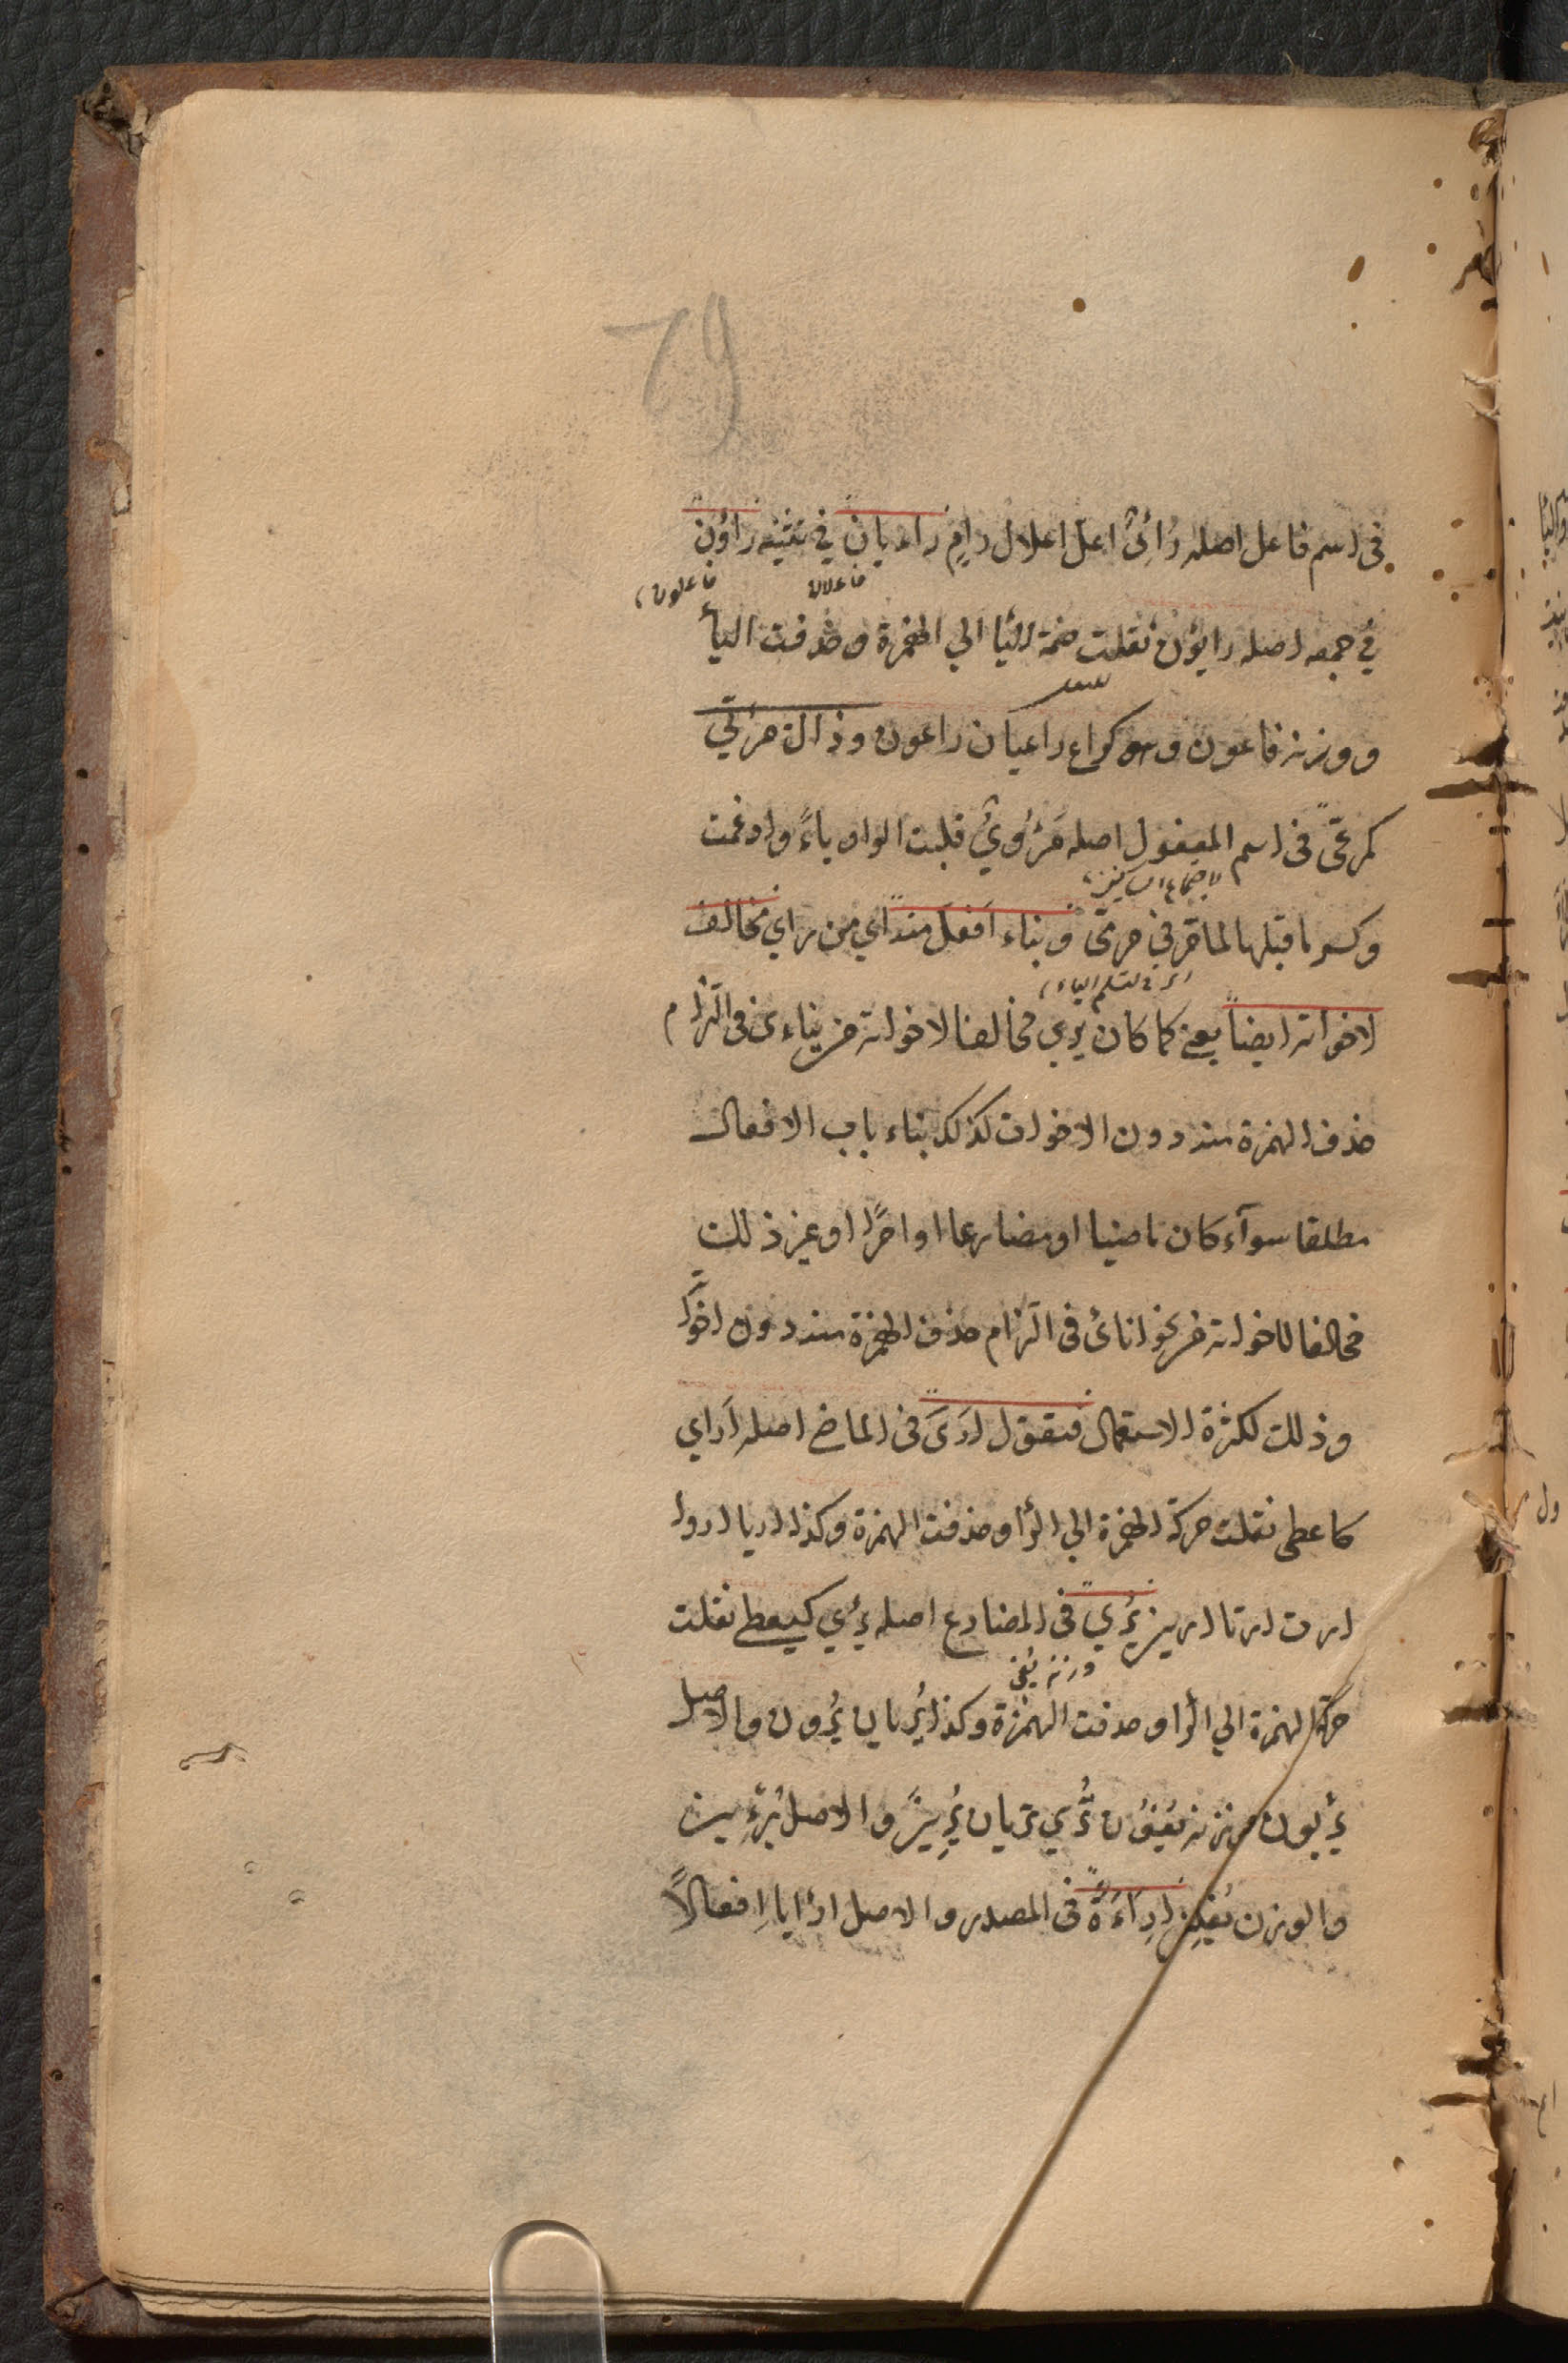 79
فى اسم فاعل اصله رَائِىٌ اعل اعلال رامٍ راءيان في تثنيه راؤن
فاعلان فاعلون
في جمعه اصله رايؤن نقلت ضمة اليأ الي الهمزة وحذفت اليأ
ووزنه فاعون وهو كراع راعيان راعون وذالك مرئي
كمرعىّ فى اسم المفعول اصله مَرْءُويٌ قلبت الواو ياءً وادغمت
لاجتماع الساكنين
وكسر ما قبلها لما مر في مرمى وبناء اَفعلَ منه اي من راي مخالف
اى لتسلم الياء
لاخواته ايضاً يعنى كما كان يرى مخالفا لاخواته من يناءى فى التزام
حذف الهمزة منه دون الاخوات كذلك بناء باب الافعال
مطلقا سوآء كان ماضيا او مضارعا او امرًا او غير ذلك
مخالفا لاخواته من نحو اناى فى التزام حذف الهمزة منه دون اخواته
وذلك لكثرة الاستعمال فتقول ارَىَ فى الماضى اصله اَراي
كاعطى نقلت حركة الهمزة الي الرأ وحذفت الهمزة وكذا اريا اروا
ارت ارتا ارين يُرِي فى المضارع اصله يرئي كيعطى نقلت
وزنه يُفِى
حركة الهمزة الي الرأ وحذفت الهمزة وكذا يُريان يُرون والاصل
يرئيون وزنه يُفُون تُري تريان يُرِينَ والاصل يُرءِين
والوزن يُفِلن اِراءَةً فى المصدر والاصل ارايا اِفعالاً